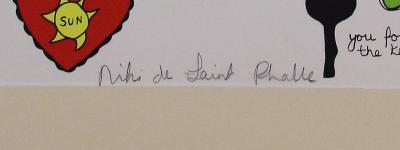 SUN
you fo
the Ke
Niki de Saint Phalle